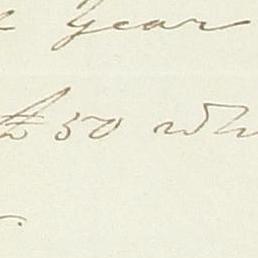 Year
£50 wh